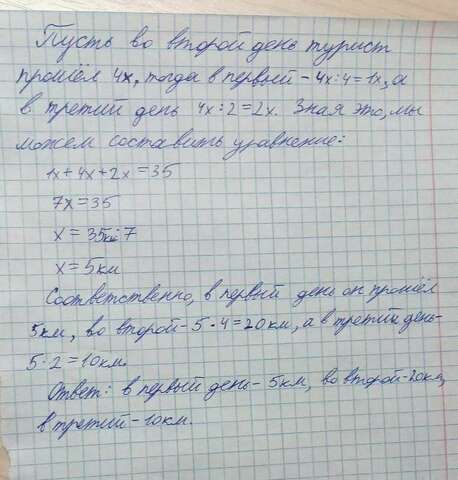 Пусть во второй день турист
прошёл 4х, тогда в первый - 4х:4=1х, а
в третий день 4х:2=2х. Зная это, мы
можем составить уравнение:
1х+4х+2х=35
7х=35
х=35км:7
х=5км
Соответственно, в первый день он прошёл
5км, во второй - 5·4=20км, а в третий день-
5·2=10км.
Ответ: в первый день - 5км, во второй - 20км,
в третий - 10км.